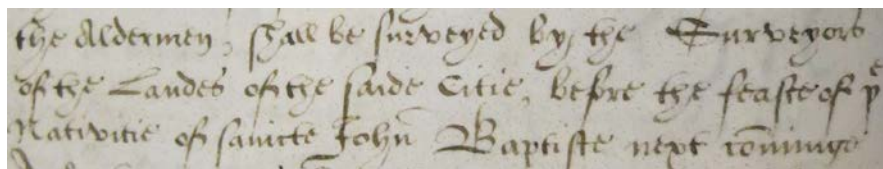 the Aldermen, shall be surveyed by the Surveyors
of the Landes of the saide Citie, before the feaste of yͤ
Nativitie of saincte John Baptiste next com̄inge